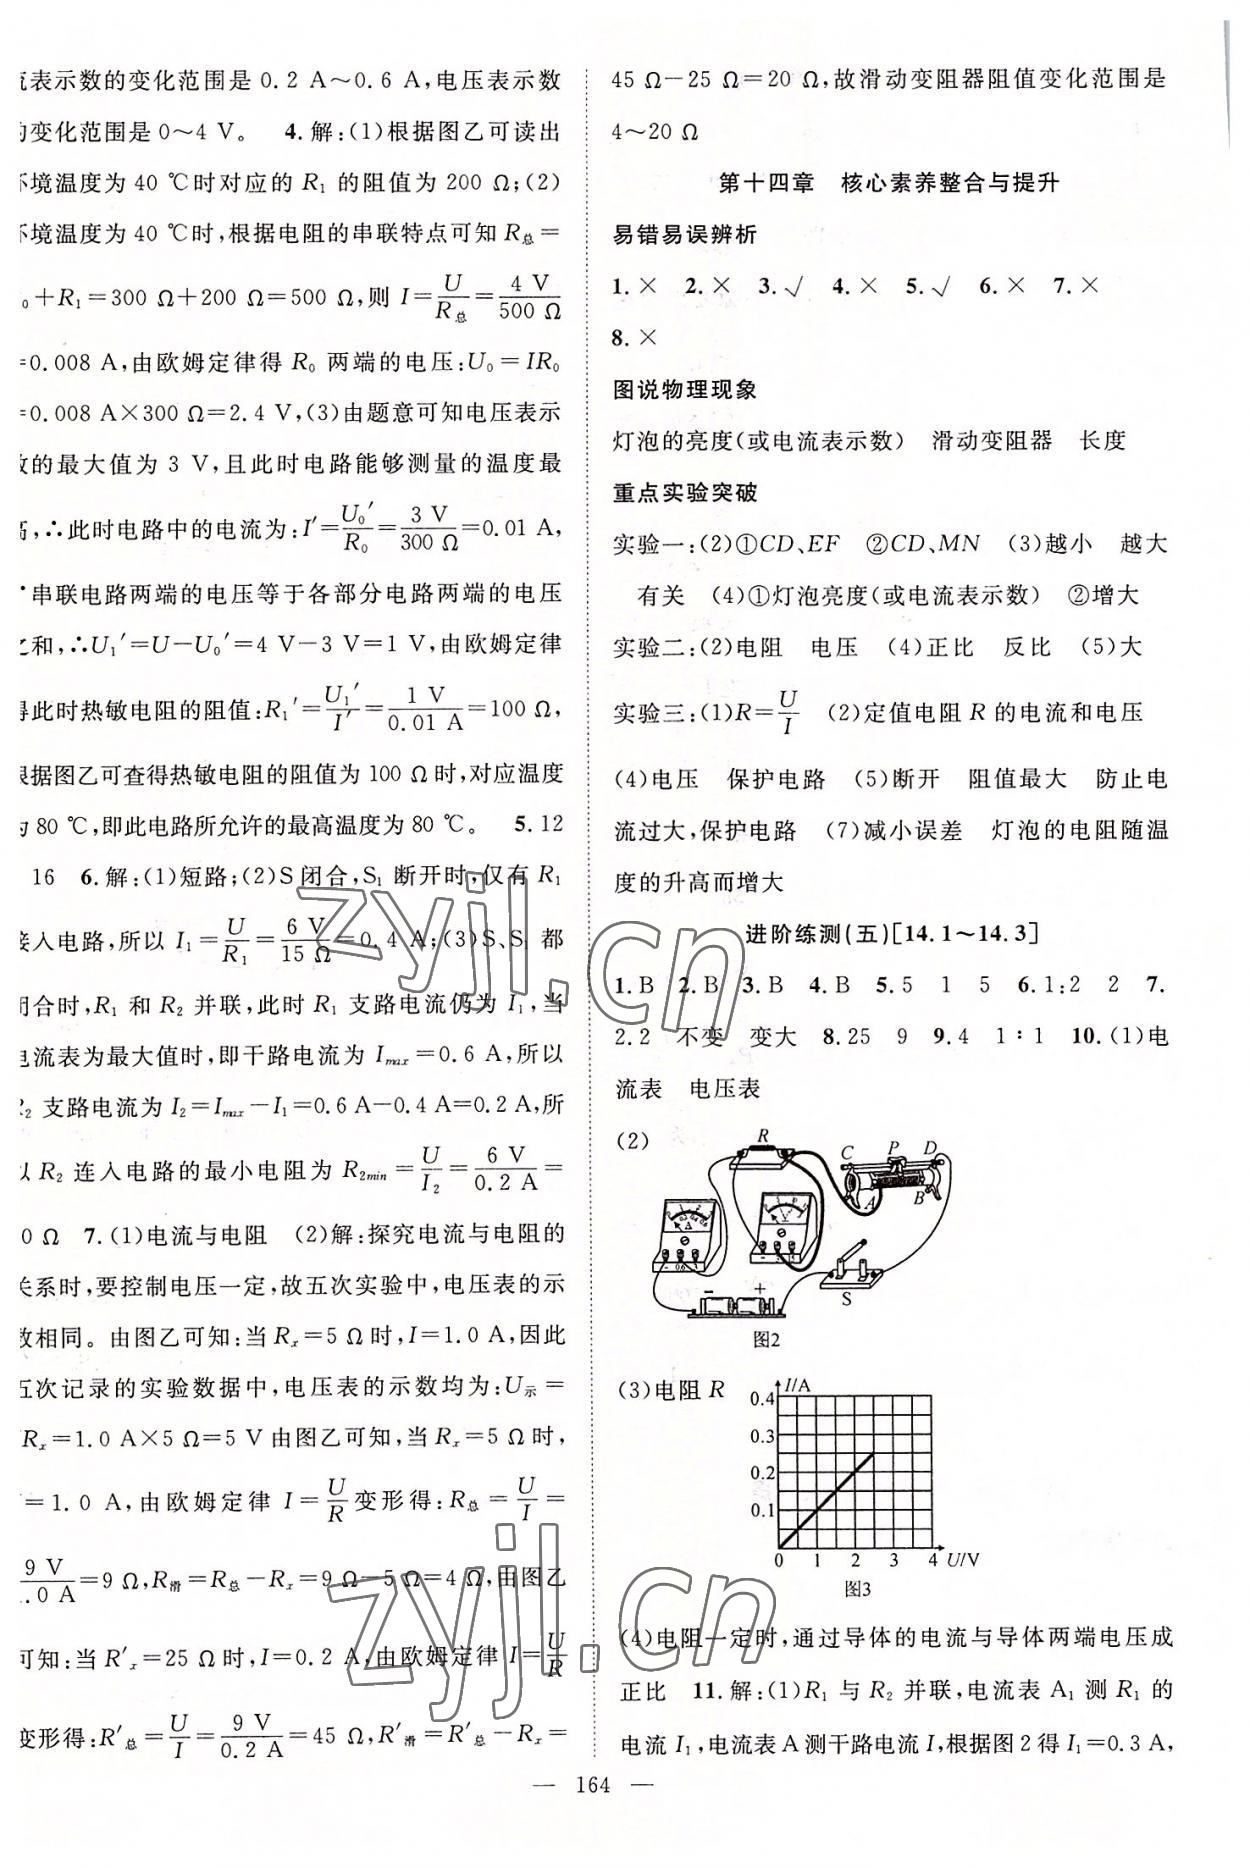 流表示数的变化范围是 0.2 A～0.6 A,电压表示数
的变化范围是 0～4 V。 4.解:(1)根据图乙可读出
环境温度为 40 ℃时对应的 R₁ 的阻值为 200 Ω;(2)
环境温度为 40 ℃时,根据电阻的串联特点可知 R总=
₀+R₁=300 Ω+200 Ω=500 Ω,则 I=U/R总=4 V/500 Ω
=0.008 A,由欧姆定律得 R₀ 两端的电压:U₀=IR₀
=0.008 A×300 Ω=2.4 V,(3)由题意可知电压表示
数的最大值为 3 V,且此时电路能够测量的温度最
高,∴此时电路中的电流为:I′=U₀′/R₀=3 V/300 Ω=0.01 A,
串联电路两端的电压等于各部分电路两端的电压
之和,∴U₁′=U−U₀′=4 V−3 V=1 V,由欧姆定律
得此时热敏电阻的阻值:R₁′=U₁′/I′=1 V/0.01 A=100 Ω,
根据图乙可查得热敏电阻的阻值为 100 Ω时,对应温度
为 80 ℃,即此电路所允许的最高温度为 80 ℃。 5.12
16 6.解:(1)短路;(2)S闭合,S₁ 断开时,仅有 R₁
接入电路,所以 I₁=U/R₁=6 V/15 Ω=0.4 A;(3)S、S₁ 都
闭合时,R₁ 和 R₂ 并联,此时 R₁ 支路电流仍为 I₁,当
电流表为最大值时,即干路电流为 Imax=0.6 A,所以
R₂ 支路电流为 I₂=Imax−I₁=0.6 A−0.4 A=0.2 A,所
以 R₂ 连入电路的最小电阻为 R₂min=U/I₂=6 V/0.2 A=
0 Ω 7.(1)电流与电阻 (2)解:探究电流与电阻的
关系时,要控制电压一定,故五次实验中,电压表的示
数相同。由图乙可知:当 Rₓ=5 Ω时,I=1.0 A,因此
五次记录的实验数据中,电压表的示数均为:U示=
Rₓ=1.0 A×5 Ω=5 V 由图乙可知,当 Rₓ=5 Ω时,
=1.0 A,由欧姆定律 I=U/R变形得:R总=U/I=
9 V/1.0 A=9 Ω,R滑=R总−Rₓ=9 Ω−5 Ω=4 Ω,由图乙
可知:当 R′ₓ=25 Ω时,I=0.2 A,由欧姆定律 I=U/R
变形得:R′总=U/I=9 V/0.2 A=45 Ω,R′滑=R′总−Rₓ=
45 Ω−25 Ω=20 Ω,故滑动变阻器阻值变化范围是
4～20 Ω
第十四章 核心素养整合与提升
易错易误辨析
1.× 2.× 3.√ 4.× 5.√ 6.× 7.×
8.×
图说物理现象
灯泡的亮度(或电流表示数) 滑动变阻器 长度
重点实验突破
实验一:(2)①CD、EF ②CD、MN (3)越小 越大
有关 (4)①灯泡亮度(或电流表示数) ②增大
实验二:(2)电阻 电压 (4)正比 反比 (5)大
实验三:(1)R=U/I (2)定值电阻 R 的电流和电压
(4)电压 保护电路 (5)断开 阻值最大 防止电
流过大,保护电路 (7)减小误差 灯泡的电阻随温
度的升高而增大
进阶练测(五)[14.1～14.3]
1.B 2.B 3.B 4.B 5.5 1 5 6.1:2 2 7.
2.2 不变 变大 8.25 9 9.4 1∶1 10.(1)电
流表 电压表
(2)
R
C P D
A B
A
V
− +
S
图2
(3)电阻 R
I/A
0.4
0.3
0.2
0.1
0 1 2 3 4 U/V
图3
(4)电阻一定时,通过导体的电流与导体两端电压成
正比 11.解:(1)R₁ 与 R₂ 并联,电流表 A₁ 测 R₁ 的
电流 I₁,电流表 A 测干路电流 I,根据图 2 得 I₁=0.3 A,
— 164 —
zyjl.cn
zyjl.cn